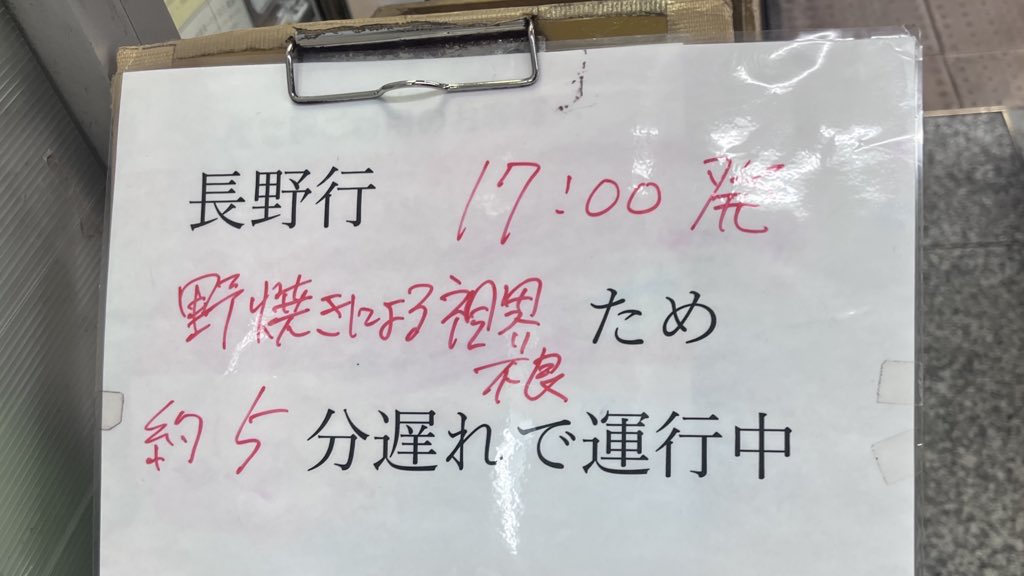 長野行 17:00 発
野焼きによる視界不良 ため
約 5 分遅れで運行中